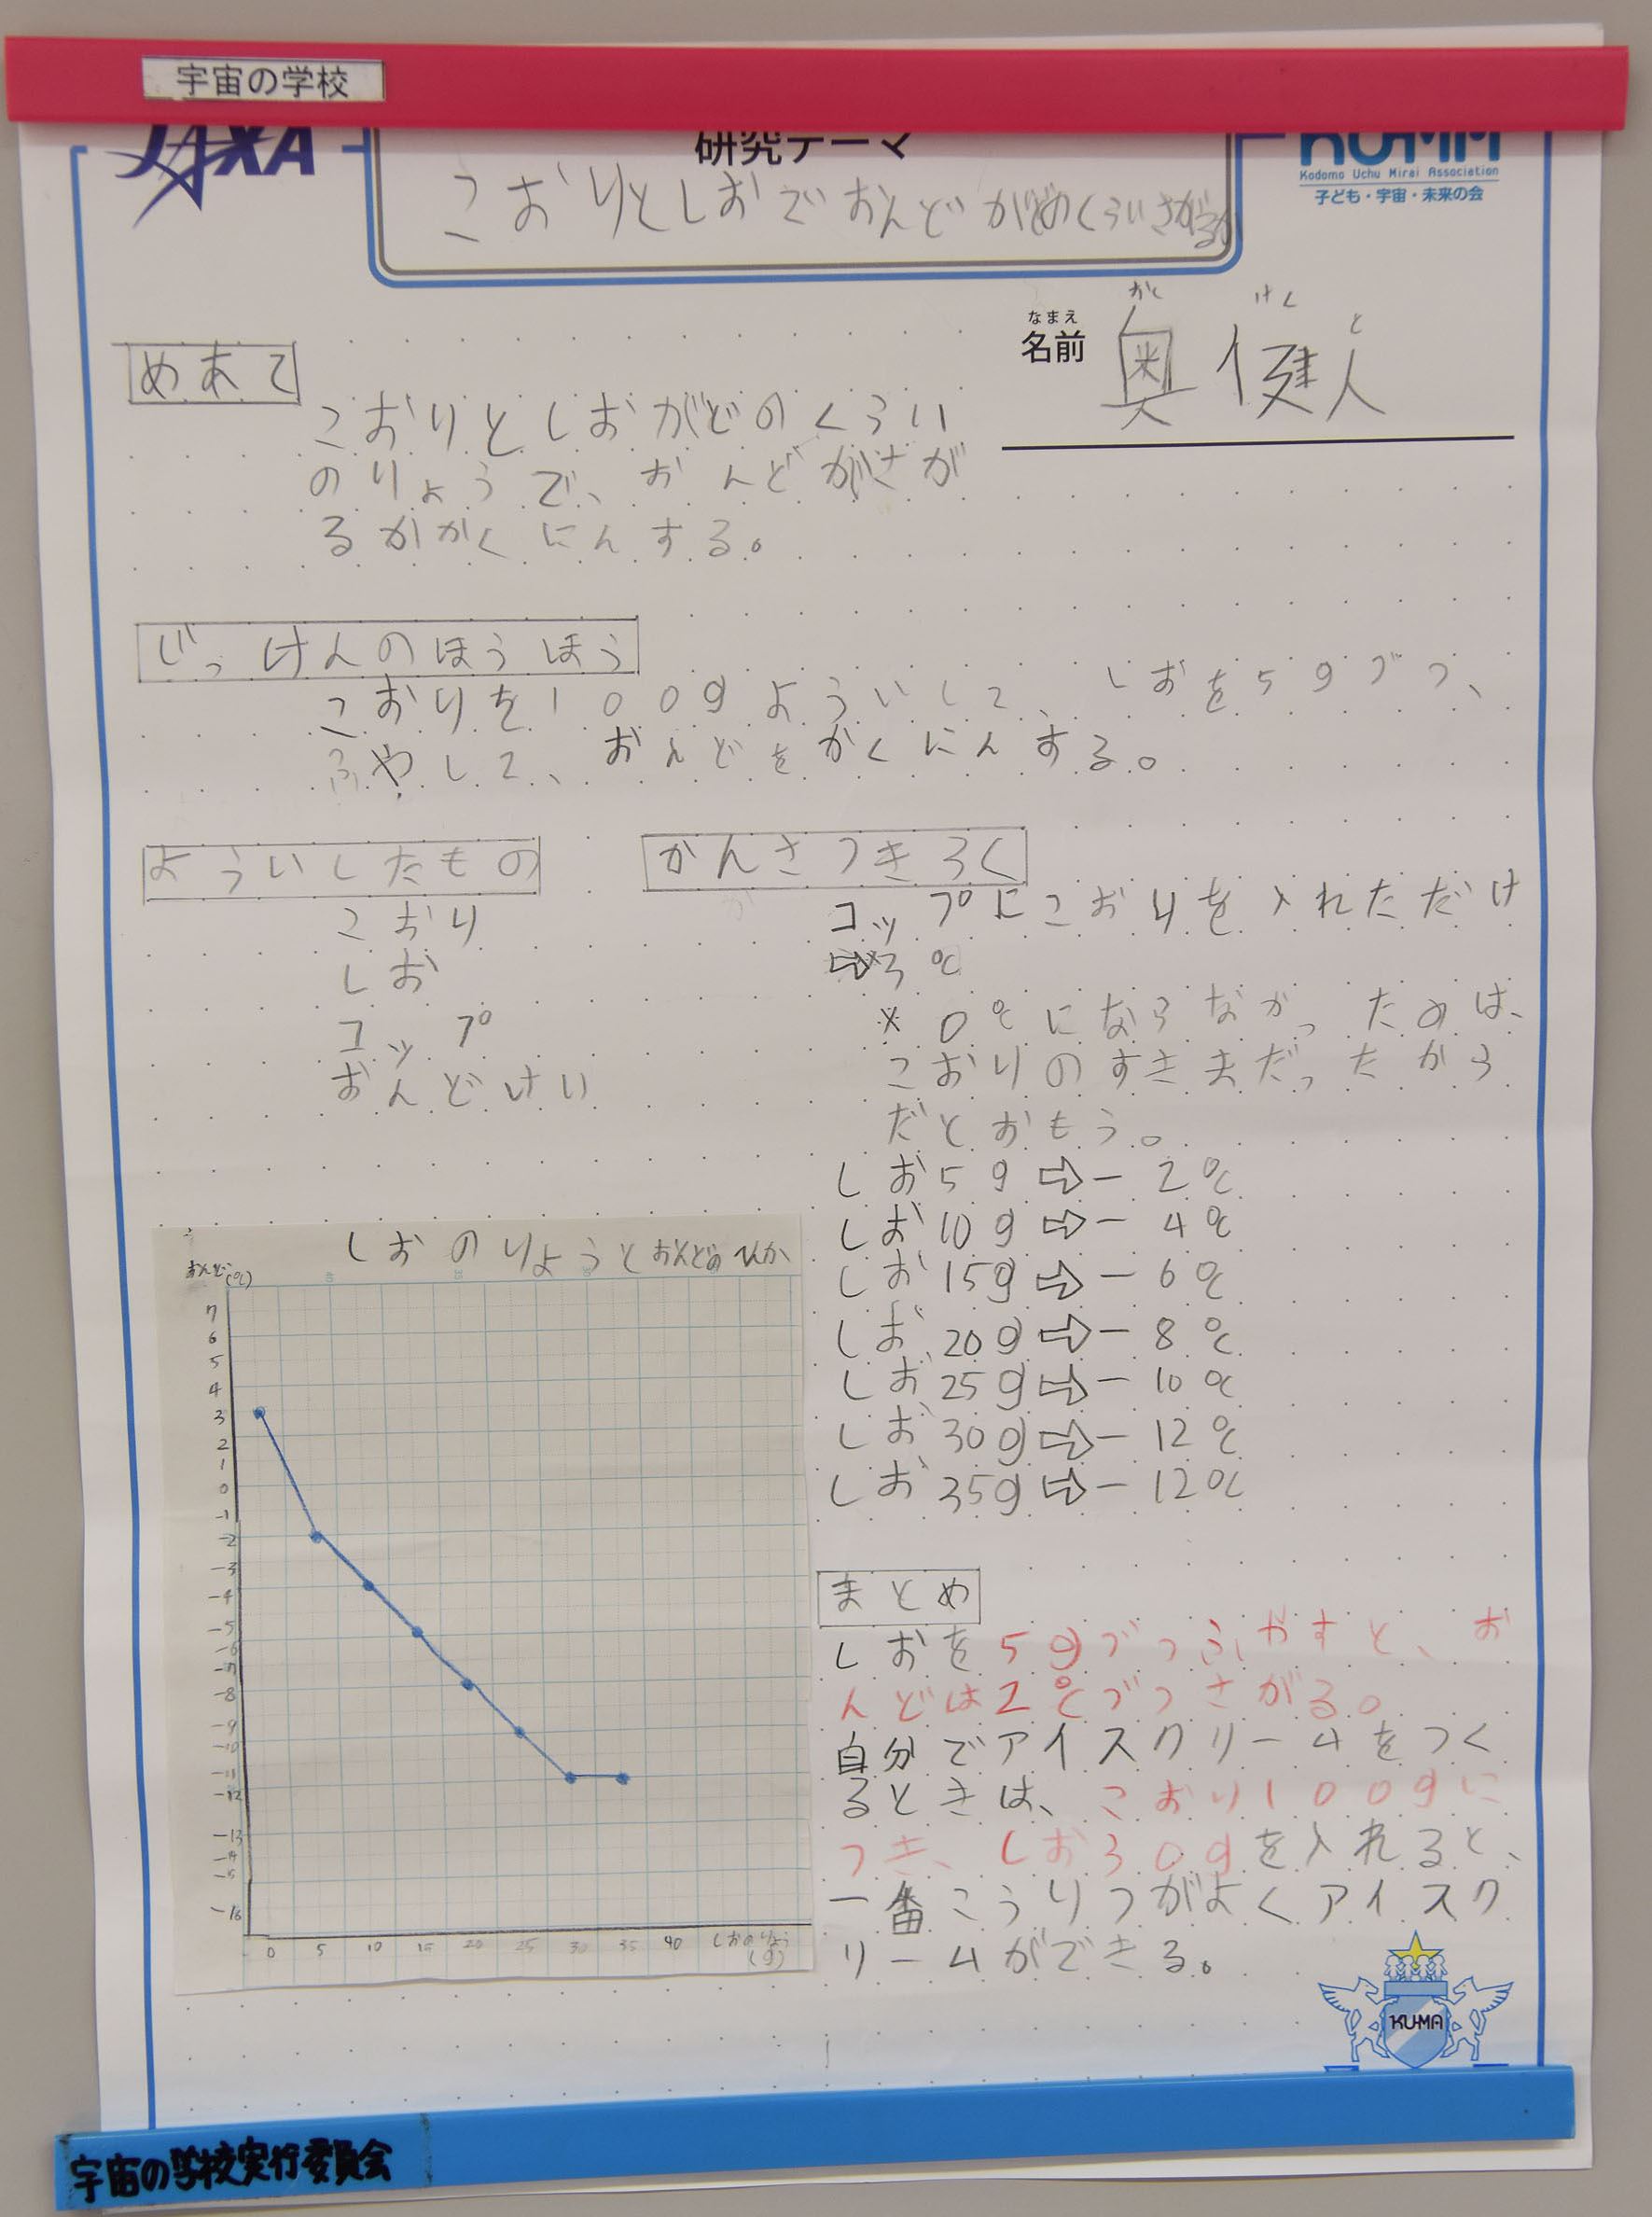 宇宙の学校
JAXA
研究テーマ
こおりとしおでおんどがどのくらいさがるか
KU-MA
Kodomo Uchu Mirai Association
子ども・宇宙・未来の会
なまえ
名前
けんと
奥健人
めあて
こおりとしおがどのくらい
のりょうで、おんどがさが
るかかくにんする。
じっけんのほうほう
こおりを100gよういして、しおを5gづつ、
ふやして、おんどをかくにんする。
よういしたもの
こおり
しお
コップ
おんどけい
かんさつきろく
コップにこおりを入れただけ
⇨3℃
※0℃にならなかったのは、
こおりのすきまだったから
だとおもう。
しお5g⇨-2℃
しお10g⇨-4℃
しお15g⇨-6℃
しお20g⇨-8℃
しお25g⇨-10℃
しお30g⇨-12℃
しお35g⇨-12℃
しおのりょうとおんどのへんか
おんど(℃)
7
6
5
4
3
2
1
0
-1
-2
-3
-4
-5
-6
-7
-8
-9
-10
-11
-12
-13
-14
-15
-16
0 5 10 15 20 25 30 35 40 しおのりょう
(g)
まとめ
しおを5gづつふやすと、お
んどは2℃づつさがる。
自分でアイスクリームをつく
るときは、こおり100gに
つき、しお30gを入れると、
一番こうりつがよくアイスク
リームができる。
KU-MA
宇宙の学校実行委員会